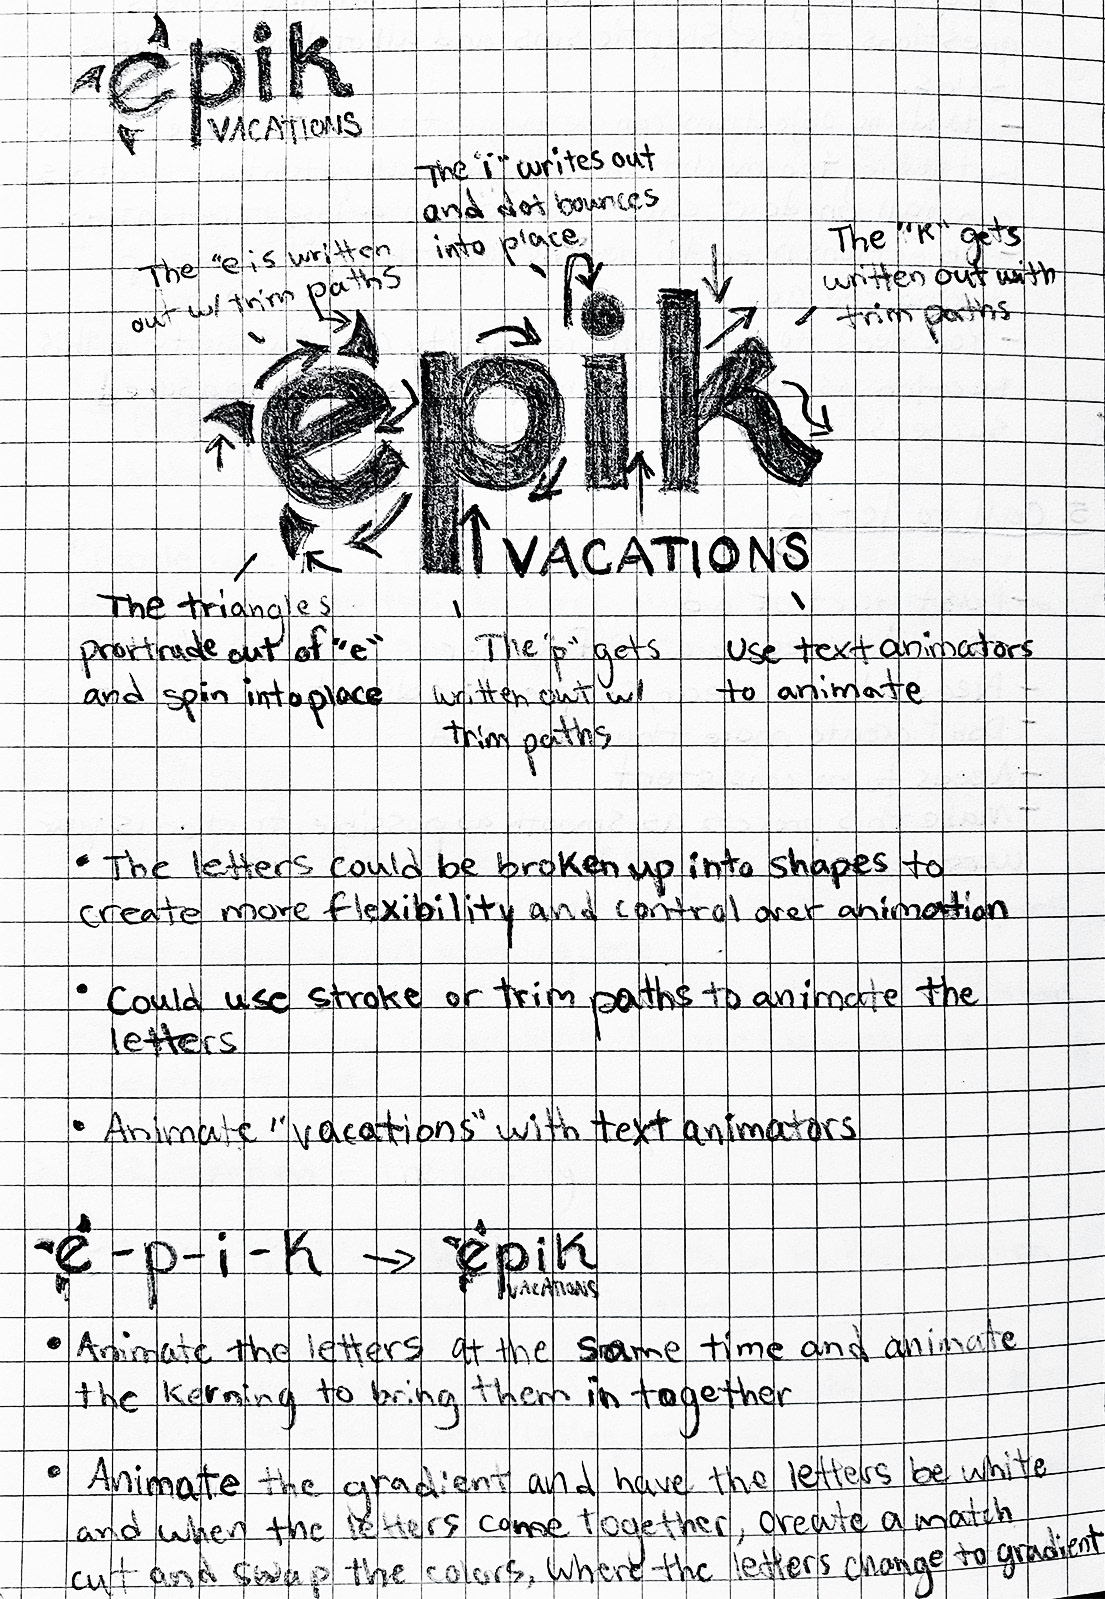 epik
VACATIONS
The "i" writes out
and dot bounces
into place
The "e is written
out w/ trim paths
The "K" gets
written out with
trim paths
epik
VACATIONS
The triangles
prortrude out of "e"
and spin into place
The "p" gets
written out w/
trim paths
Use text animators
to animate
• The letters could be broken up into shapes to
create more flexibility and control over animation
• Could use stroke or trim paths to animate the
letters
• Animate "vacations" with text animators
e - p - i - k → epik
VACATIONS
• Animate the letters at the same time and animate
the kerning to bring them in together
• Animate the gradient and have the letters be white
and when the letters come together, create a match
cut and swap the colors, where the letters change to gradient